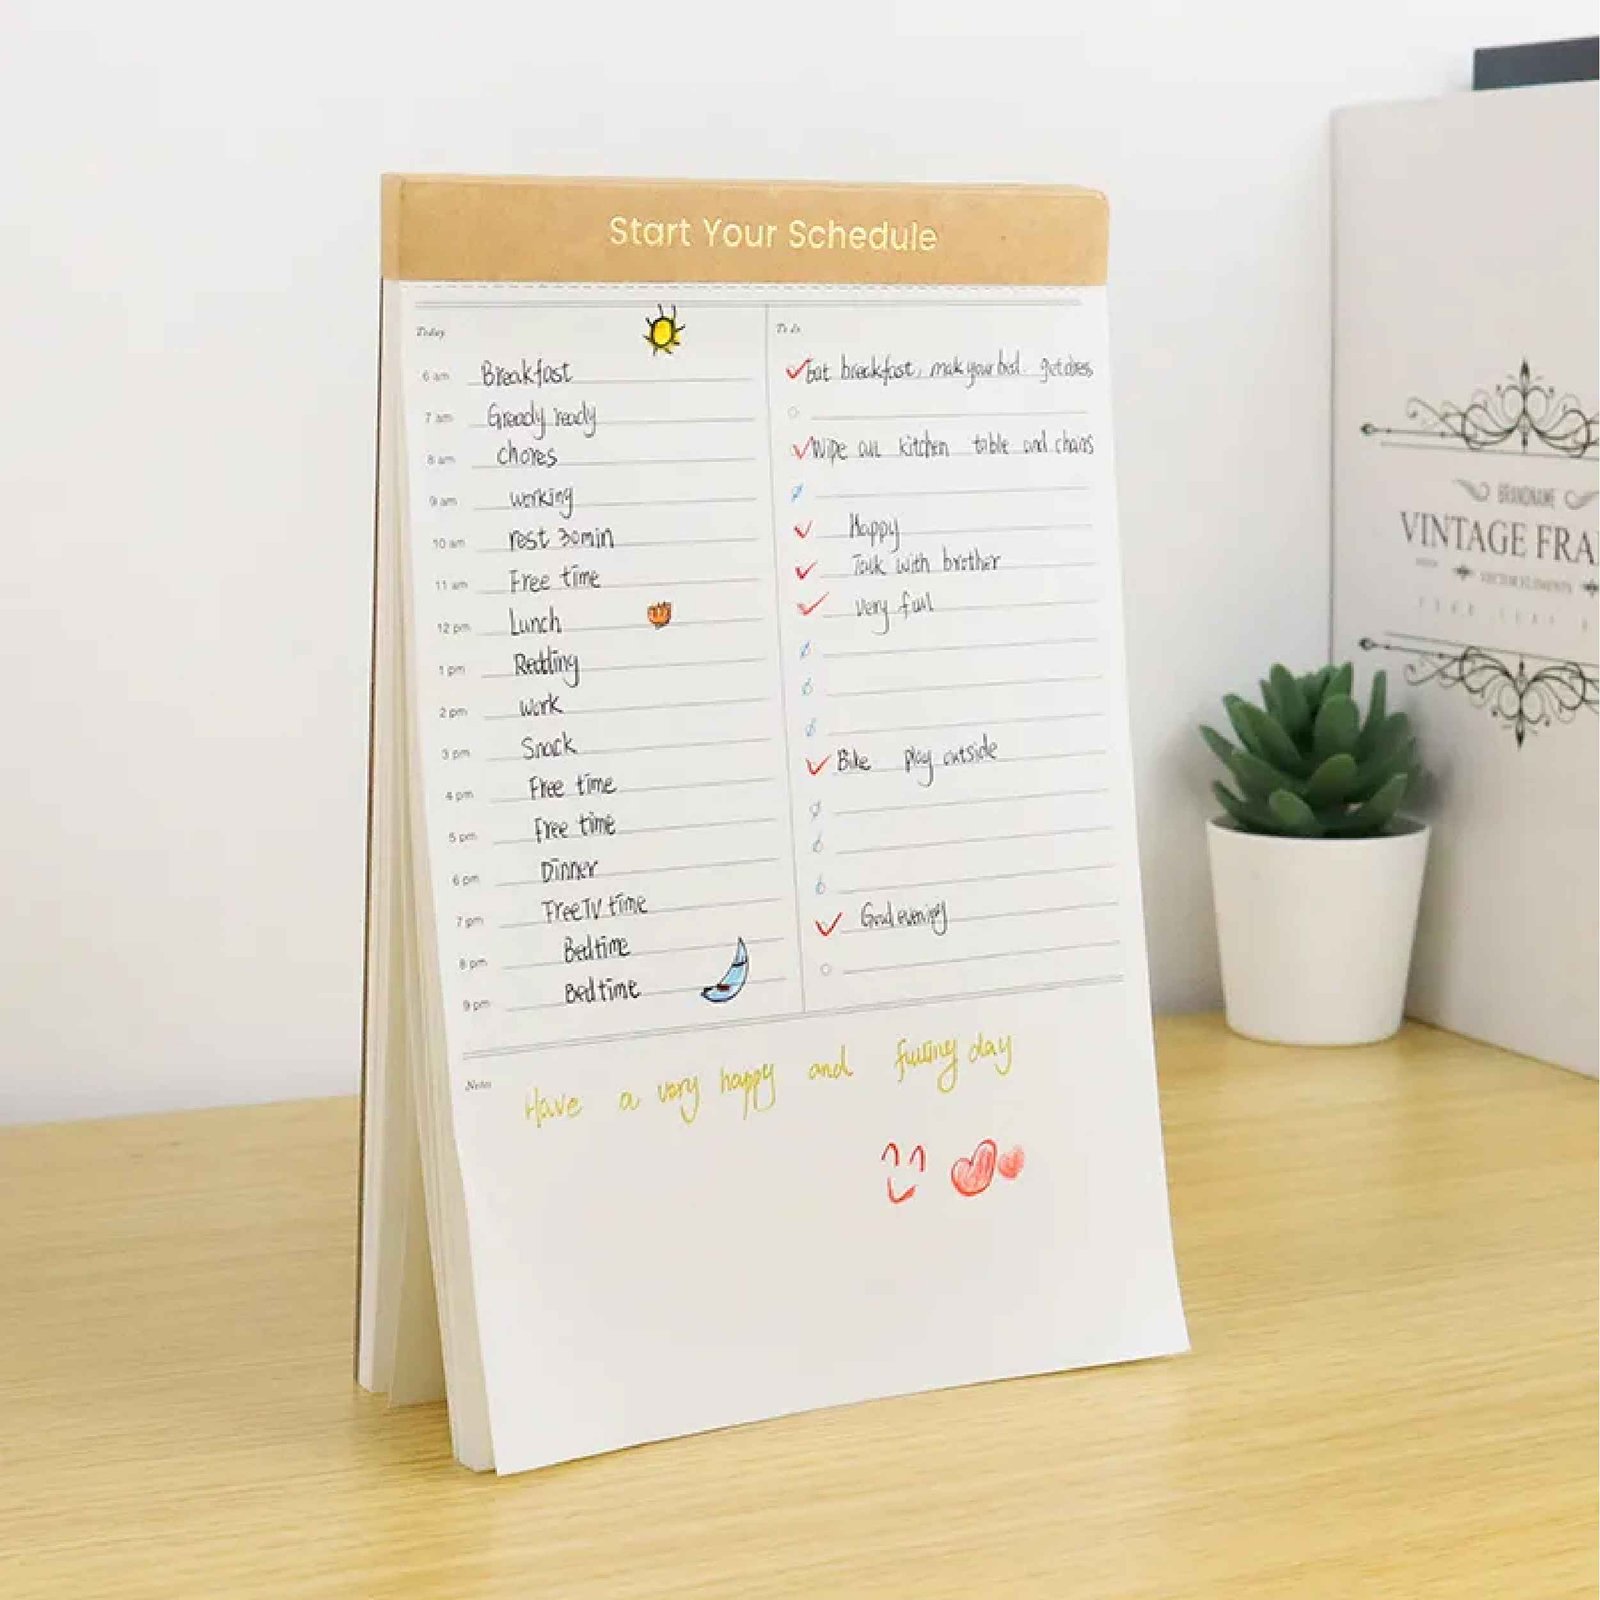 Start Your Schedule
Today
6 am Breakfast
7 am Gready ready
8 am chores
9 am working
10 am rest 30min
11 am Free time
12 pm Lunch
1 pm Redding
2 pm work
3 pm Snack
4 pm Free time
5 pm Free time
6 pm Dinner
7 pm Free TV time
8 pm Bedtime
9 pm Bedtime
To do
Eat breakfast, mak your bed. get dress
Wipe all kitchen table and chairs
Happy
Talk with brother
very full
Bike play outside
Good evening
Notes
Have a very happy and day
BRANDNAME
VINTAGE FRA
VECTOR ELEMENTS